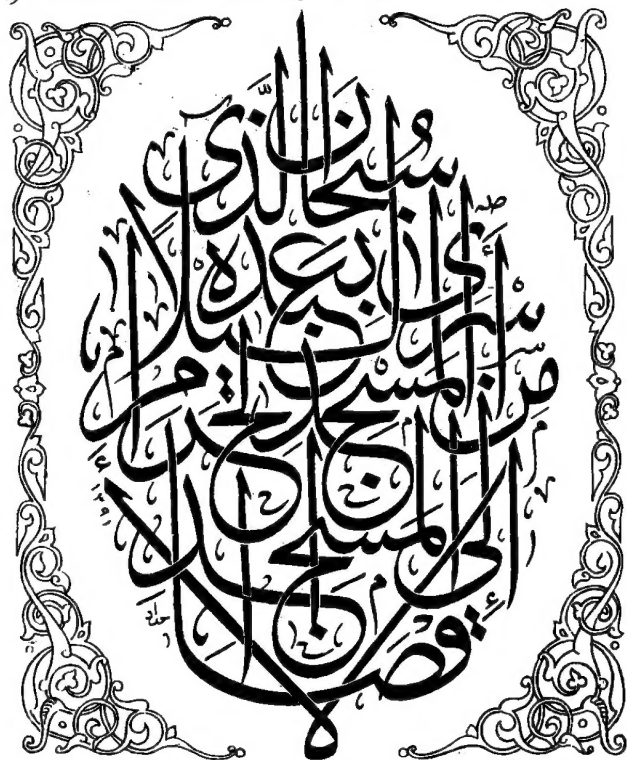 سُبْحَانَ الَّذِي
أَسْرَىٰ بِعَبْدِهِ لَيْلًا
مِنَ الْمَسْجِدِ الْحَرَامِ
إِلَى الْمَسْجِدِ
الْأَقْصَى
١٣٩١